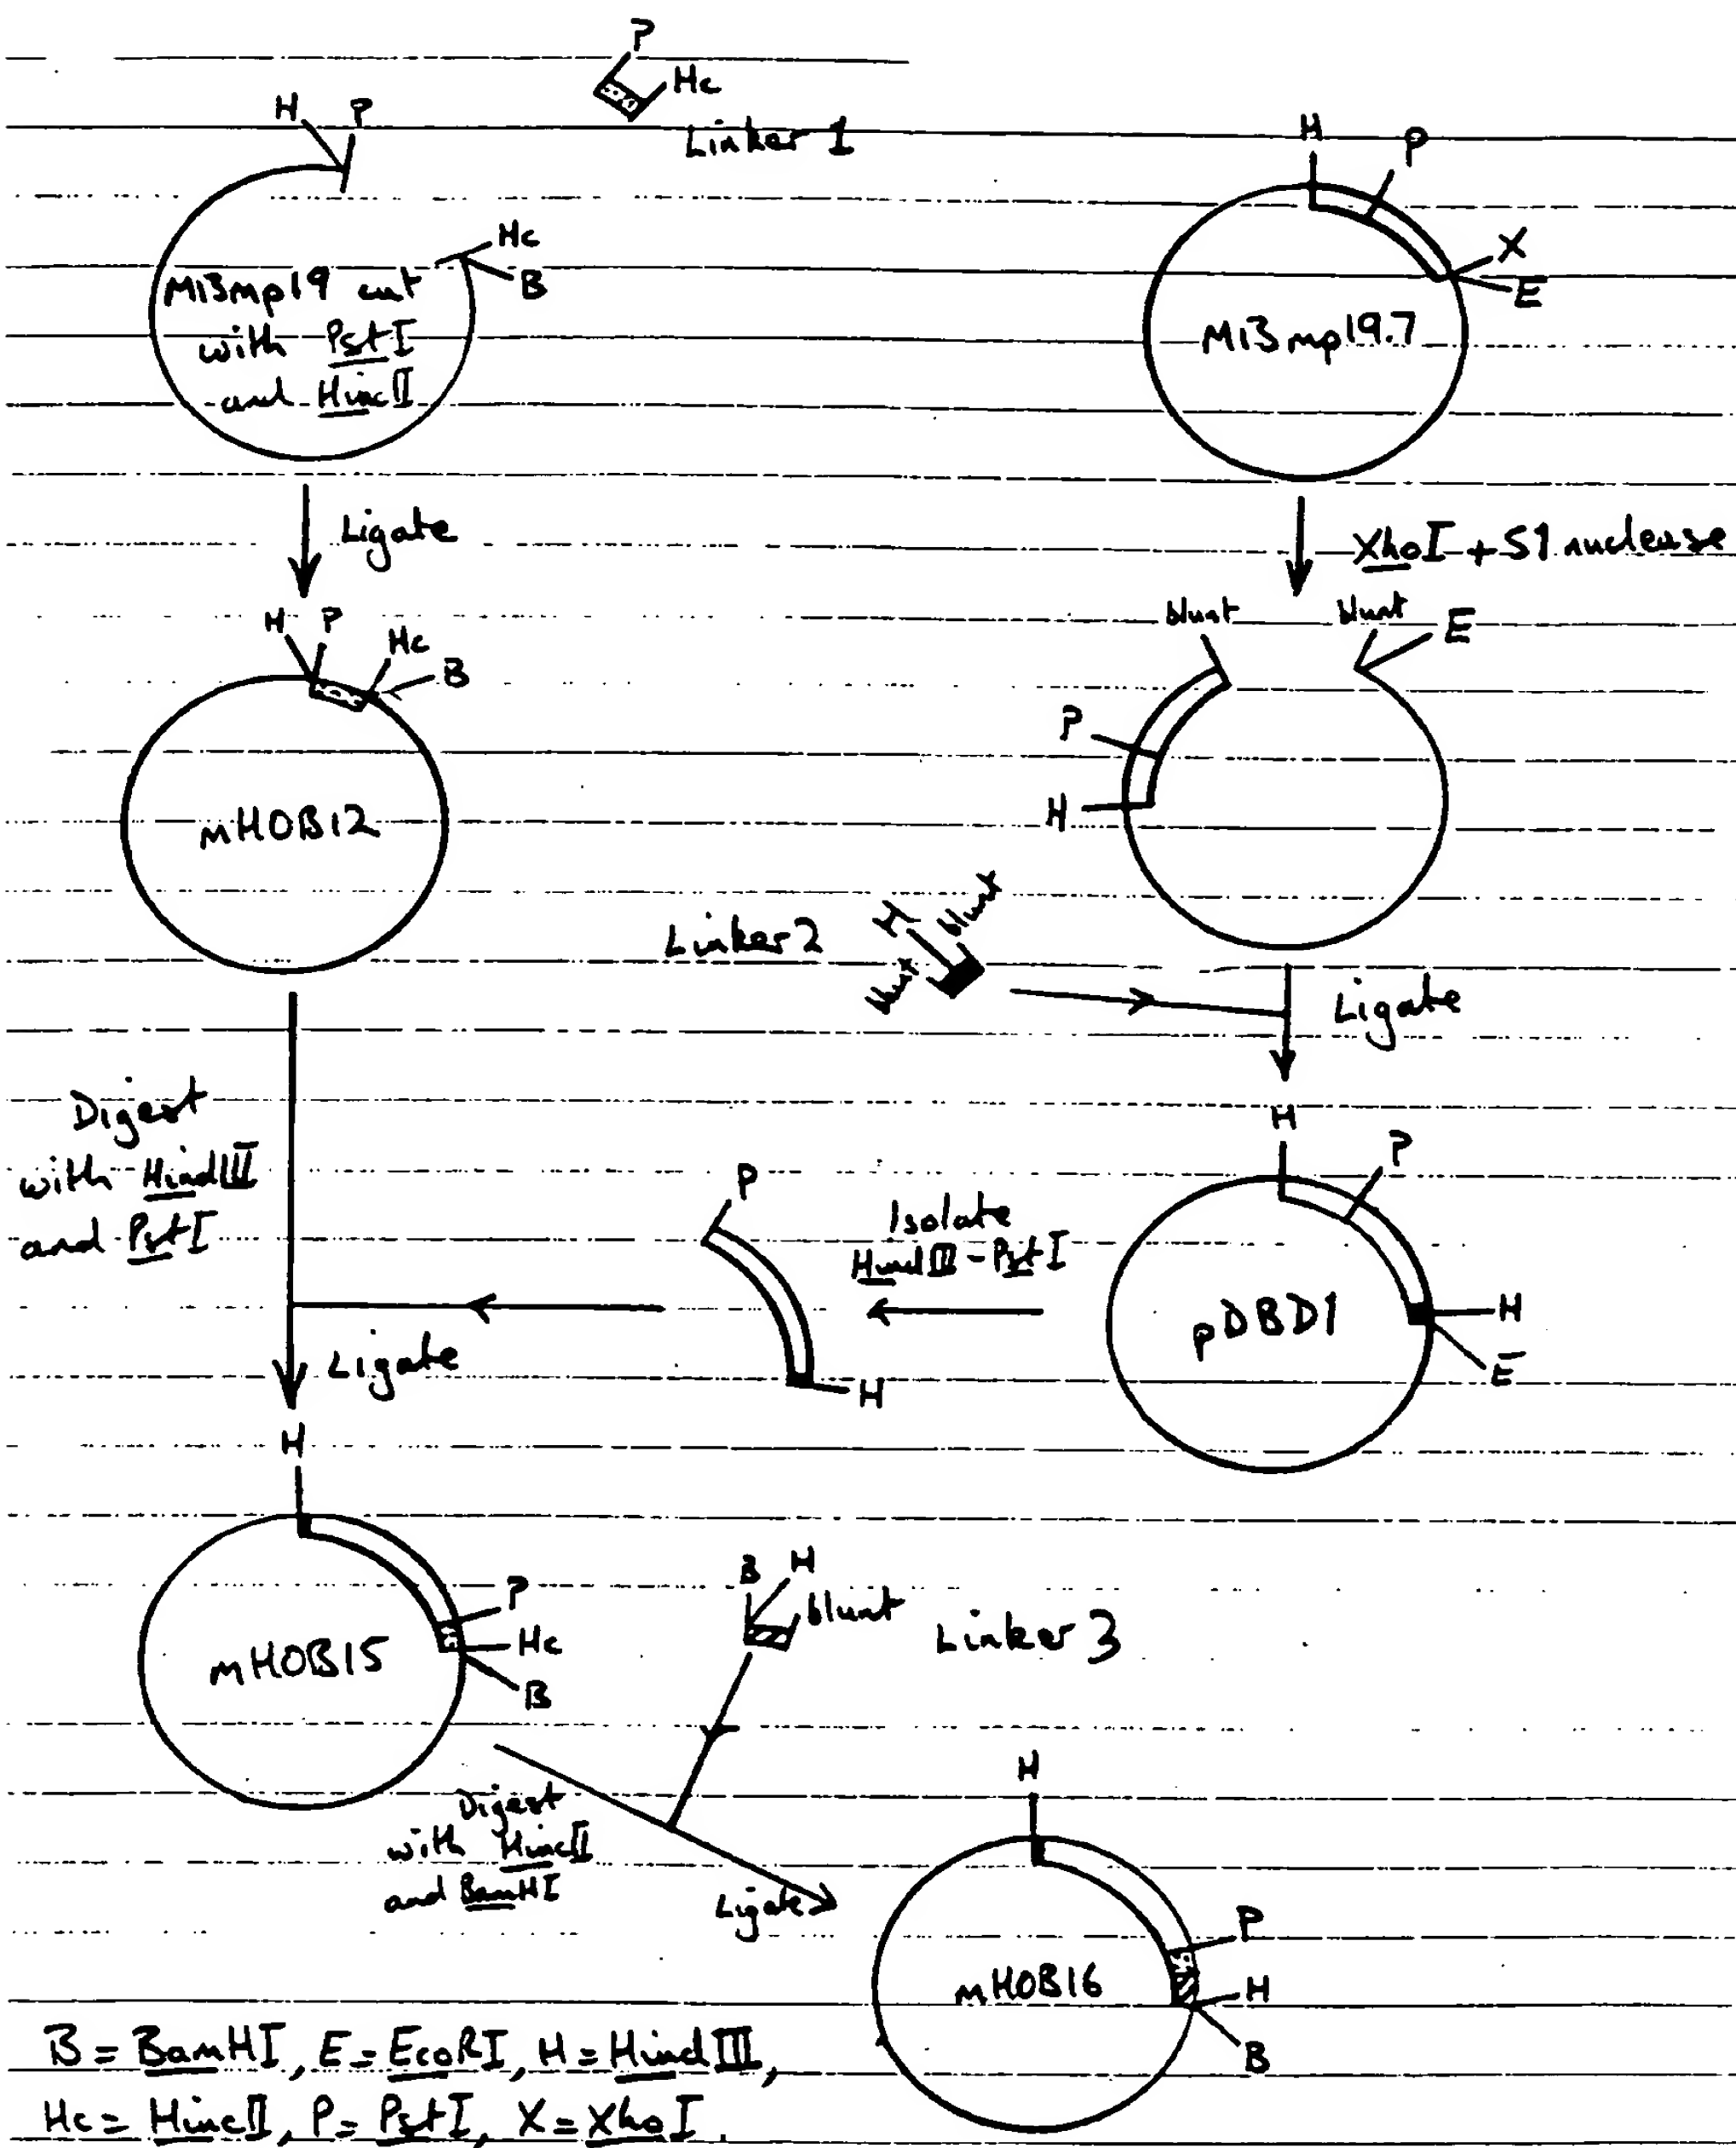 P
Hc
Linker 1
H P
Hc
B
M13mp19 cut
with PstI
and HincII
H
P
X
E
M13mp19.7
Ligate
XhoI + S1 nuclease
H P Hc
B
mHOB12
blunt blunt E
P
H
Linker 2
H blunt
blunt
Ligate
Digest
with HindIII
and PstI
P
Isolate
HindIII - PstI
H
P
H
E
pDBD1
H
Ligate
H
P
Hc
B
mHOB15
B H
blunt
Linker 3
Digest
with HincII
and BamHI
Ligate
H
P
H
B
mHOB16
B = BamHI, E = EcoRI, H = HindIII,
Hc = HincII, P = PstI, X = XhoI.